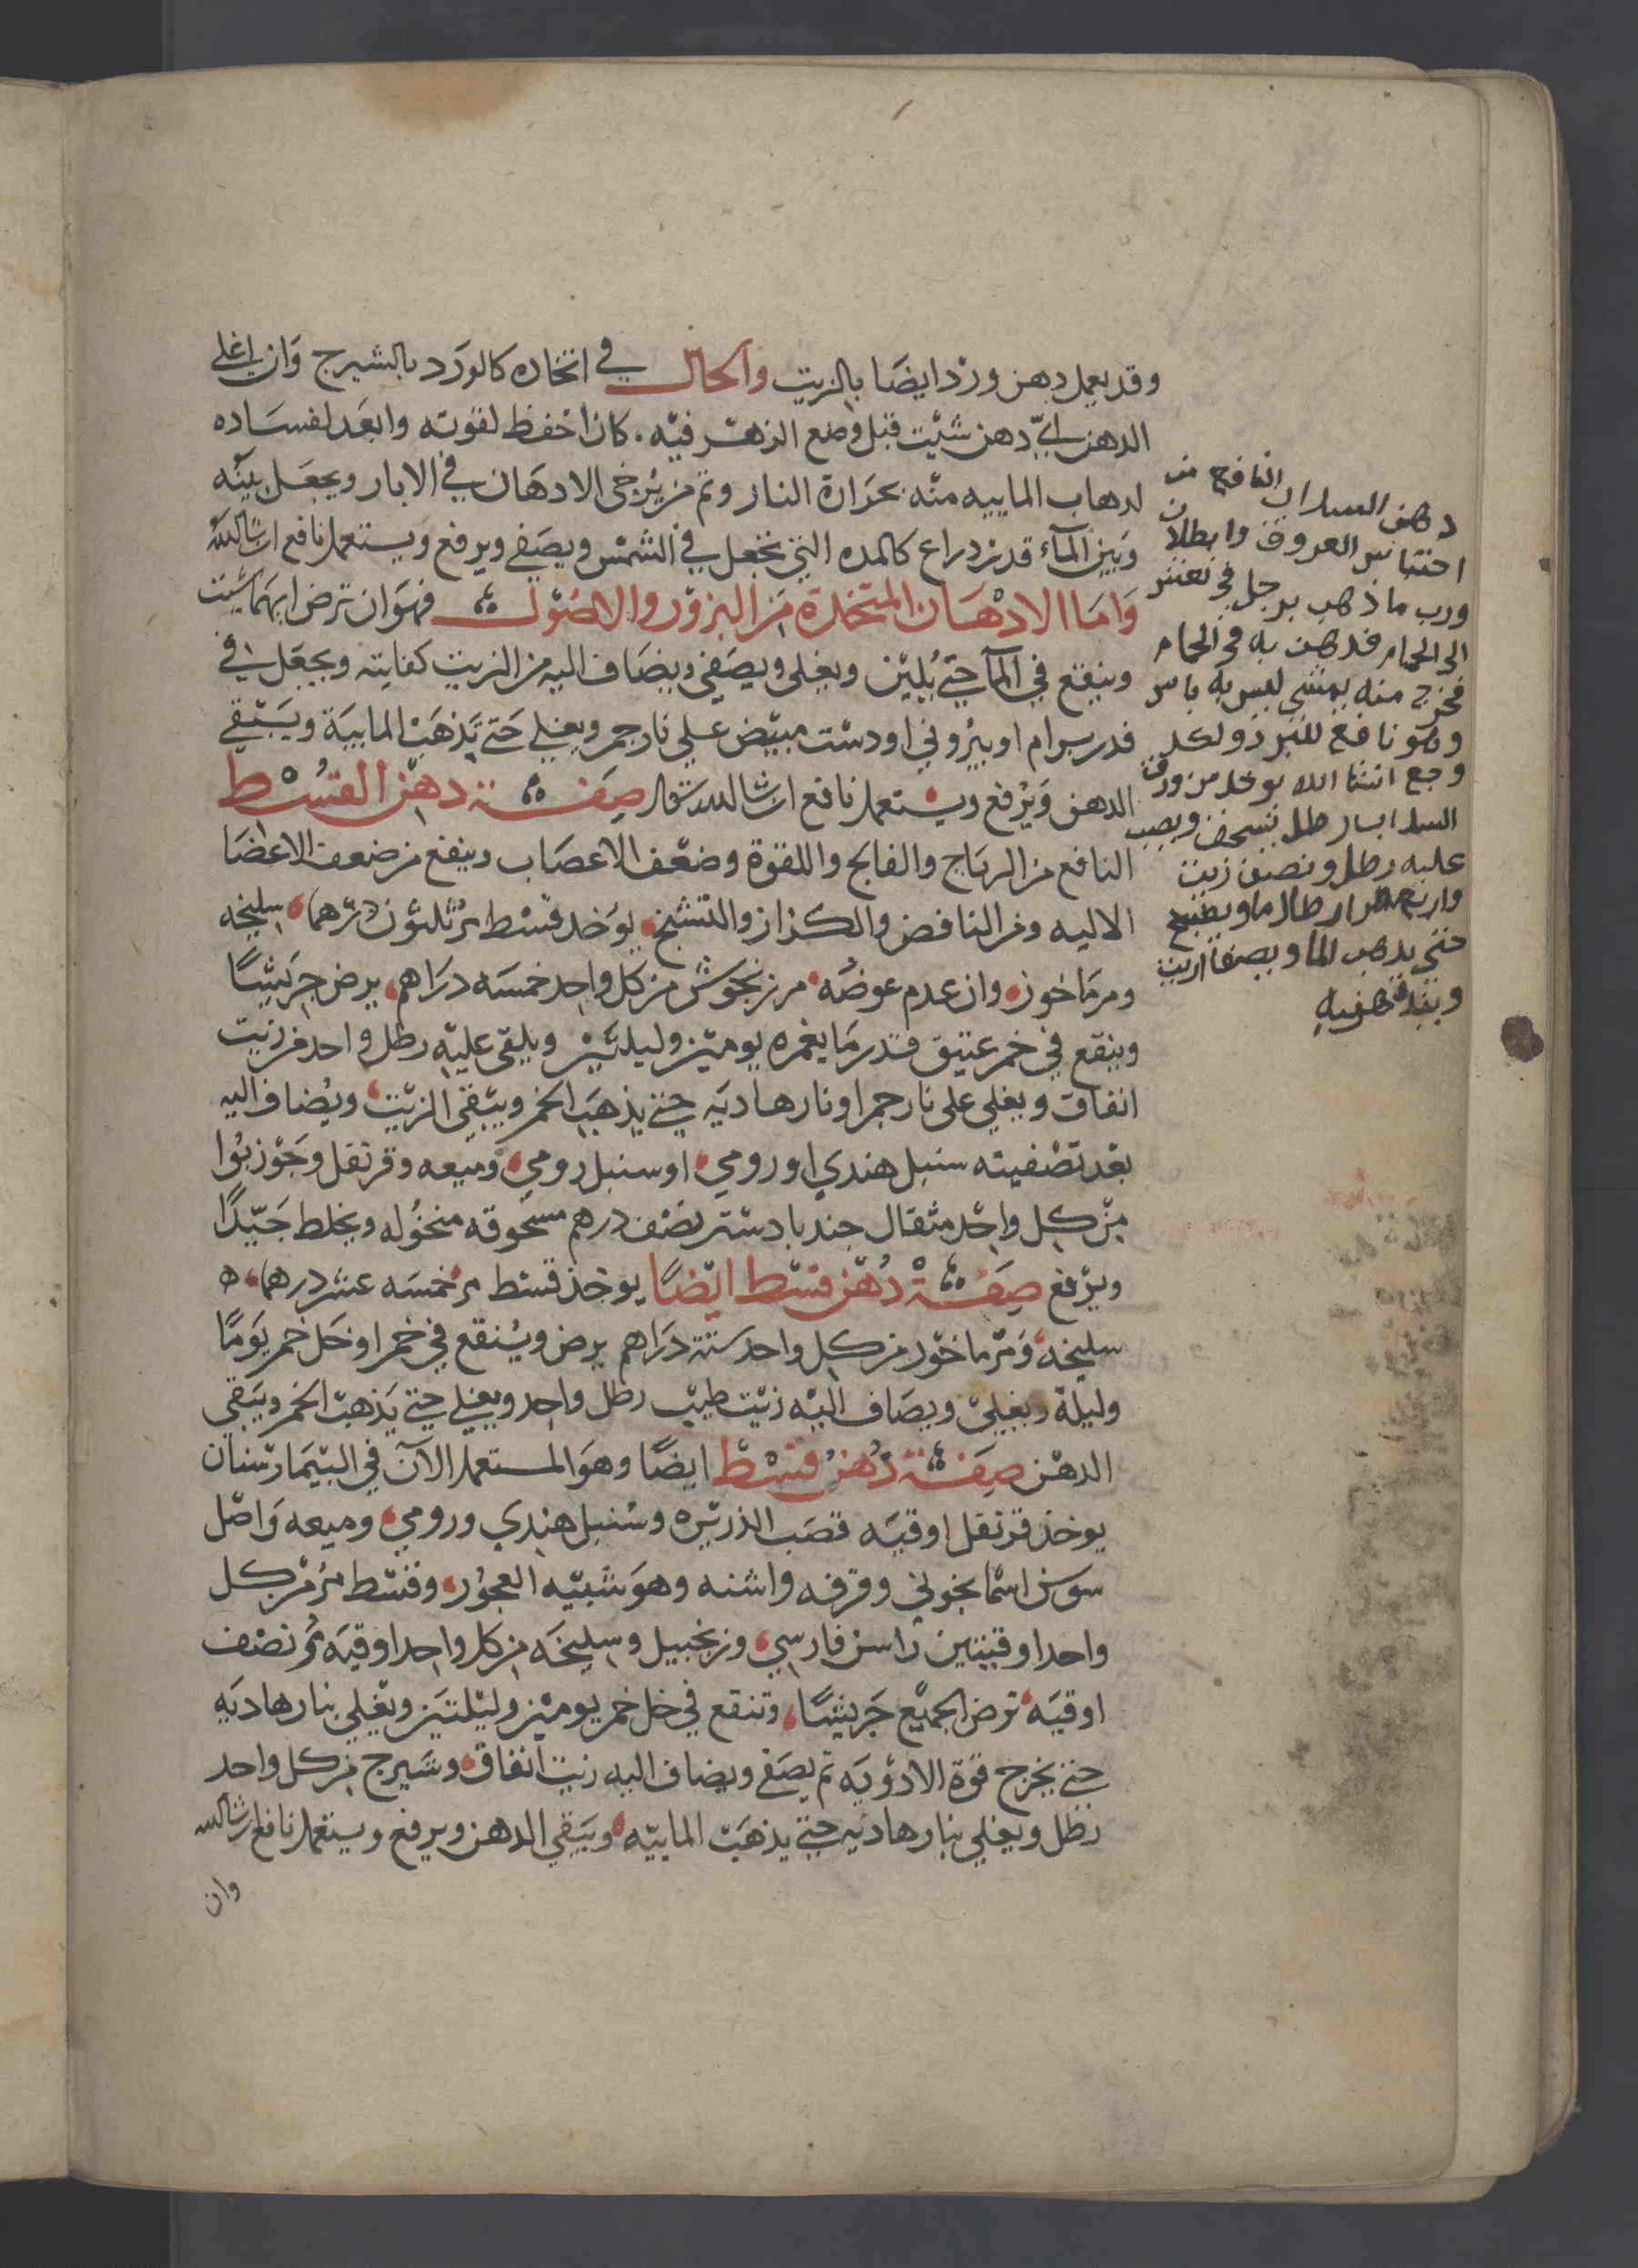 وقد يعمل دهن ورد ايضا بالزيت والحال في اتخاده كالورد بالشيرج وان اغلي
الدهن اي دهن شيت قبل وضع الزهر فيه كان احفظ لقوته وابعد لفساده
لدهاب الماييه منه بحرارة النار وثم من يرخي الادهان في الابار ويجعل بينه
وبين المآء قدر دراع كالمده التي تجعل في الشمس ويصفي ويرفع ويستعمل نافع ان شا الله
واما الادهان المتخدة من البزور والاصول فهو ان ترض ايهما شيت
وينقع في المآ حتي يلين ويغلي ويصفي ويضاف اليه من الزيت كفايته ويجعل في
قدر برام او بيروني او دست مبيض علي نار جمر ويغلي حتي تذهب الماييه ويبقي
الدهن ويرفع ويستعمل نافع ان شا الله تعالى صفة دهن القسط
النافع من الرياح والفالج واللقوة وضعف الاعصاب وينفع من ضعف الاعضا
الاليه ومن النافض والكزاز والتشنج يوخد قسط مر ثلثون درهما سليخه
ومرماخوز وان عدم عوضه مرزنجوش من كل واحد خمسه دراهم يرض جريشا
وينقع في خمر عتيق قدر ما يغمره يومين وليلتين ويلقي عليه رطل واحد من زيت
انفاق ويغلي على نار جمر او نار هاديه حتي يذهب الخمر ويبقي الزيت ويضاف اليه
بعد تصفيته سنبل هندي او رومي او سنبل رومي وميعه وقرنفل وجوز بوا
من كل واحد مثقال جندبادستر نصف درهم مسحوقه منخوله ويخلط جيدا
ويرفع صفة دهن قسط ايضا يوخذ قسط مر خمسه عشر درهما ه
سليخه ومرماخوز من كل واحد ستة دراهم يرض وينقع في خمر او خل خمر يوما
وليلة ويغلي ويضاف اليه زيت طيب رطل واحد ويغلي حتي يذهب الخمر ويبقي
الدهن صفة دهن قسط ايضا وهو المستعمل الآن في البيمارستان
يوخذ قرنفل اوقيه قصب الذريره وسنبل هندي ورومي وميعه واصل
سوسن اسمانجوني وقرفه واشنه وهو شيبه العجوز وقسط مر من كل
واحد اوقيتين راسن فارسي وزنجبيل وسليخه من كل واحد اوقيه مر نصف
اوقيه ترض الجميع جريشا وتنقع في خل خمر يومين وليلتين ويغلي بنار هاديه
حتي يخرج قوة الادويه ثم يصفي ويضاف اليه زيت انفاق وشيرج من كل واحد
رطل ويغلي بنار هاديه حتي يذهب الماييه ويبقي الدهن ويرفع ويستعمل نافع ان شا الله
وان
دهن السداب النافع من
احتباس العروق وابطلان
ورب ما ذهب برجل في
الى الحمام فدهن به في الحمام
فخرج منه يمشي ليس به باس
وهو نافع للبرد ولكل
وجع انشا الله يوخد من ورق
السداب رطل يسحق ويصب
عليه رطل ونصف زيت
واربعه ارطال ما ويطبخ
حتى يدهب الما ويصفا الزيت